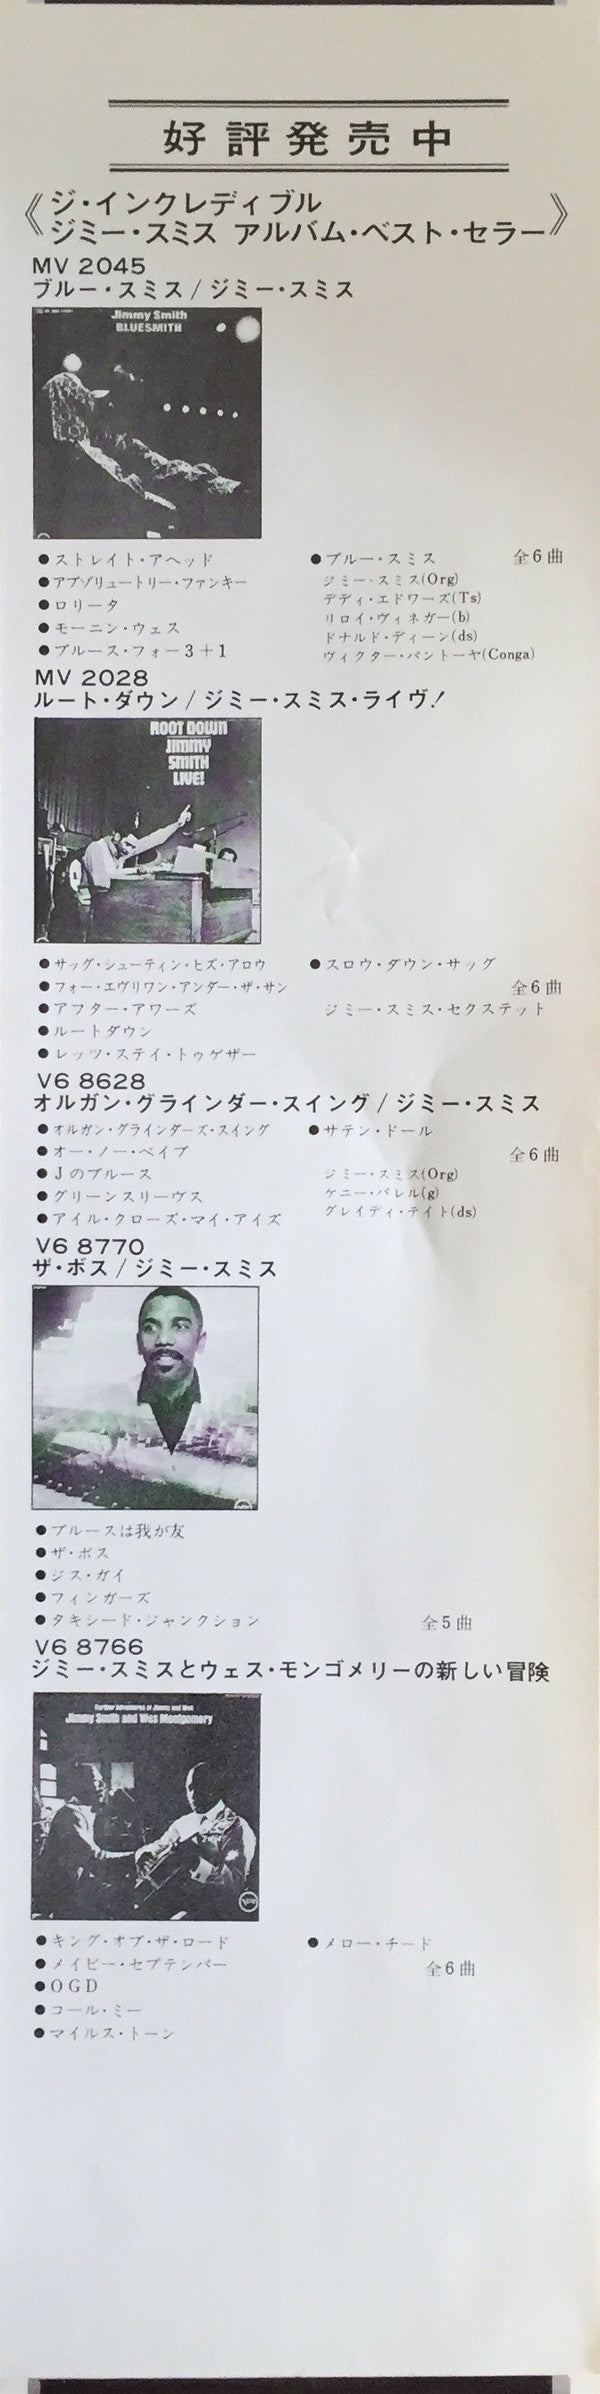 好評発売中
《ジ・インクレディブル
ジミー・スミス アルバム・ベスト・セラー》
MV 2045
ブルー・スミス/ジミー・スミス
Jimmy Smith
BLUESMITH
●ストレイト・アヘッド
●アブゾリュートリー・ファンキー
●ロリータ
●モーニン・ウェス
●ブルース・フォー3+1
●ブルー・スミス
全6曲
ジミー・スミス(Org)
テディ・エドワーズ(Ts)
リロイ・ヴィネガー(b)
ドナルド・ディーン(ds)
ヴィクター・パントーヤ(Conga)
MV 2028
ルート・ダウン/ジミー・スミス・ライヴ!
ROOT DOWN
JIMMY
SMITH
LIVE!
●サッグ・シューティン・ヒズ・アロウ
●フォー・エヴリワン・アンダー・ザ・サン
●アフター・アワーズ
●ルートダウン
●レッツ・ステイ・トゥゲザー
●スロウ・ダウン・サッグ
全6曲
ジミー・スミス・セクステット
V6 8628
オルガン・グラインダー・スイング/ジミー・スミス
●オルガン・グラインダーズ・スイング
●オー・ノー・ベイブ
●Jのブルース
●グリーンスリーヴス
●アイル・クローズ・マイ・アイズ
●サテン・ドール
全6曲
ジミー・スミス(Org)
ケニー・バレル(g)
グレイディ・テイト(ds)
V6 8770
ザ・ボス/ジミー・スミス
●ブルースは我が友
●ザ・ボス
●ジス・ガイ
●フィンガーズ
●タキシード・ジャンクション
全5曲
V6 8766
ジミー・スミスとウェス・モンゴメリーの新しい冒険
Further Adventures of Jimmy and Wes
Jimmy Smith and Wes Montgomery
●キング・オブ・ザ・ロード
●メイビー・セプテンバー
●OGD
●コール・ミー
●マイルス・トーン
●メロー・チード
全6曲